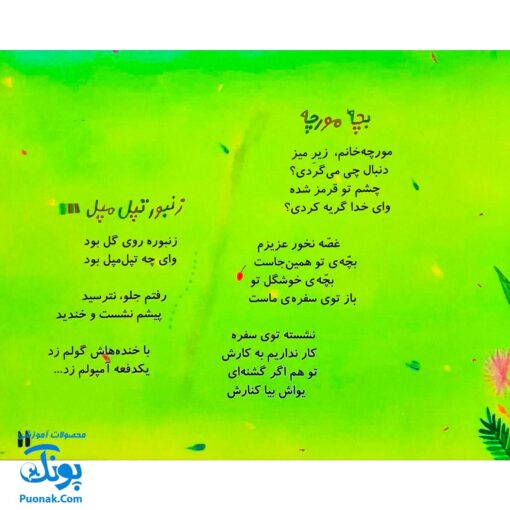 بچه مورچه
مورچه‌خانم، زیرِ میز
دنبال چی می‌گردی؟
چشم تو قرمز شده
وای خدا گریه کردی؟
غصّه نخور عزیزم
بچّه‌ی تو همین‌جاست
بچّه‌ی خوشگل تو
باز توی سفره‌ی ماست
نشسته توی سفره
کار نداریم به کارش
تو هم اگر گشنه‌ای
یواش بیا کنارش
زنبور تپل مپل
زنبوره روی گل بود
وای چه تپل‌مپل بود
رفتم جلو، نترسید
پیشم نشست و خندید
با خنده‌هاش گولم زد
یکدفعه آمپولم زد...
محصولات آموزشی
پونک
Puonak.Com